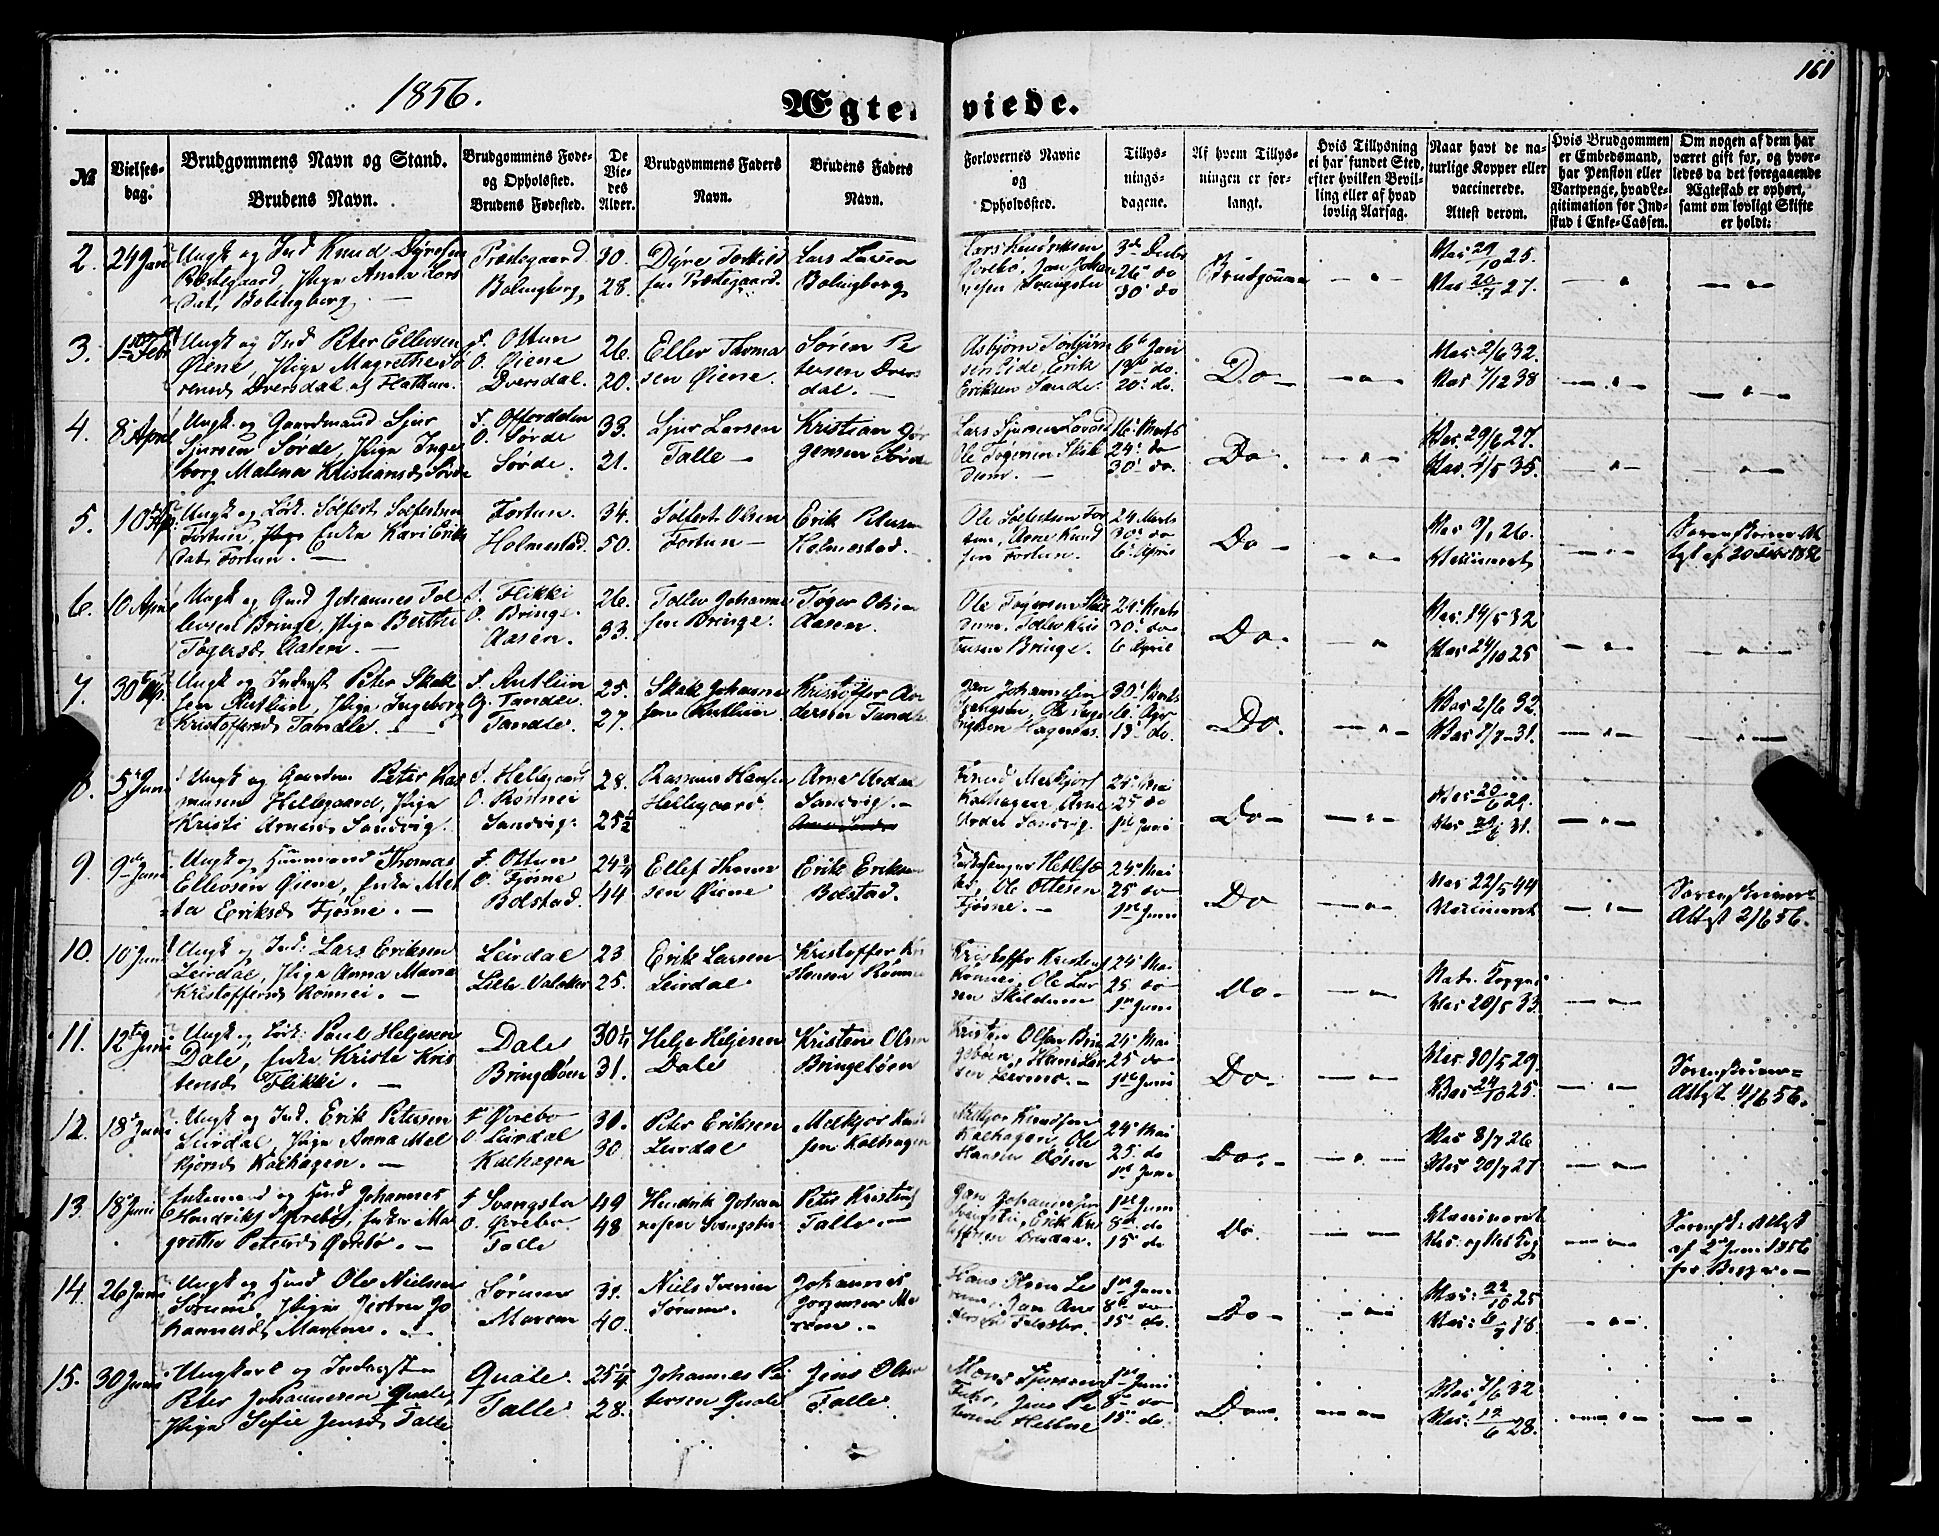 161
1856.
Ægteviede.
№
Vielsesdag.
Brudgommens Navn og Stand.
Brudens Navn.
Brudgommens Føde-
og Opholdsted.
Brudens Fødested.
De
Vie-
des
Alder.
Brudgommens Faders
Navn.
Brudens Faders
Navn.
Forlovernes Navne
og
Opholdssted.
Tillys-
nings-
dagene.
Af hvem Tillys-
ningen er for-
langt.
Hvis Tillysning
ei har fundet Sted,
efter hvilken Bevil-
ling eller af hvad
lovlig Aarsag.
Naar havt de na-
turlige Kopper eller
vaccinerede.
Attest derom.
Hvis Brudgommen
er Embedsmand,
har Pension eller
Vartpenge, hvad Le-
gitimation for Ind-
skud i Enke-Cassen.
Om nogen af dem har
været gift før, og hvor-
ledes da det foregaaende
Ægteskab er ophørt,
samt om lovligt Skifte
er holdt:
2. 24 Jan
Ungk og Ind Knud Dyresen
Præstegaard, Pige Anna Lars
Dat, Bolingberg
Præstegaard
Bolingberg
30.
28.
Dyre Torkild
sen Præstegaard
Lars Larsen
Bolingberg
Lars Hendriksen
Øvrebø, Jan Johan
nesen Svangstu
3de Decbr
26 do
30 do
Brudgomme
Vac 29/10 25.
Vac 20/7 27.
3. 1ste Febr
Ungk og Ind Peter Ellevsen
Øiene, Pige Magrethe Sø
rensd Dversdal af Flathun.
F. Ottun
O. Øiene
Dversdal.
26.
20.
Ellev Thoma
sen Øiene.
Søren Pe
tersen Dvers
dal.
Asbjørn Torbjørn
sen Eide, Erik
Eriksen Tande
6te Jan
13de do.
20. do.
Do
Vac 2/6 32.
Vac 7/12 38
4. 8 April
Ungk. og Gaardmand Sjur
Sjursen Sørde, Pige Inge
borg Malena Kristiansd Sørde
F. Offerdalen
O. Sørde
Sørde.
33.
21.
Sjur Larsen
Talle
Kristian Jør
gensen Sørde
Lars Sjursen
Ole Tøgersen Skil
dum.
16. Marts
24. do
30. do.
Do
Vac. 29/6 27.
Vac. 4/5 35.
5. 10 Ap.
Ungk og Løsk. Solfest Solfestsen
Fortun, Enke Kari Eriks
Dat. Fortun.
Fortun.
Holmestad.
34.
50.
Solfest Olsen
Fortun
Erik Petersen
Holmestad.
Ole Solfestsen For
tun, Arne Knud
sen Fortun.
24 Marts
30. do
6. April
Do
Vac 9/1 26.
Vaccineret
Sorenskriver At
test af 20 1856
6. 10 April
Ungk og Ind Johannes Tol
levsen Bringe, Pige Berthe
Tøgersd. Aasen.
F. Flikki
O. Bringe.
Aasen.
26.
33.
Tollev Johanne
sen Bringe.
Tøger Olsen
Aasen.
Ole Tøgersen Skil
dum, Tollev Kris
tensen Bringe.
24. Marts
30. do
6 April
Do.
Vac. 14/5 32
Vac 24/10 25
7. 30 Ap.
Ungk og Inderst Peter Skak
sen Antlun, Pige Ingeborg
Kristoffersd Tandle.
F. Antlun
O. Tandle
Tandle.
25.
27.
Skak Johanne
sen Antlun
Kristoffer An
dersen Tandle
Jan Johannesen
Svangstu, Ole Inge
brigtsen Hagenæs.
30. Marts
6. Apr
13. do.
Do
Vac 2/6 32.
Vac 7/7 31.
8. 5 Juni
Ungk og Gaardm Peter Ras
musen Hellegaard, Pige
Kristi Arnesd Sandvig.
F. Hellegaard
O. Rønnei
Sandvig.
28.
25½
Rasmus Hansen
Hellegaard.
Arne Ardae
Sandvig.
Knud Melkjorsen
Kalhagen, Arne
Ardae Sandvig.
24. Mai
25 do
1ste Juni
Do
Vac 20/6 29.
Vac 24/6 31.
9. 9de Juni
Ungk og Huusmand Thomas
Ellevsen Øiene, Enke Met
ta Eriksd Fjørne.
F. Ottun
O. Fjørne
Bolstad.
24¾
44
Ellef Thoma
sen Øiene
Erik Eriksen
Bolstad.
Ole Ottesen
Fjørne.
24. Mai
25 do
1ste Juni
Do
Vac 22/5 44
Vaccineret
Sorenskriver
Attest 2/6 56.
10. 10 Juni
Ungk og Ind: Lars Eriksen
Leirdal, Pige Anna Maria
Kristoffersd Rønnei.
Leirdal
Lille-Valaker
23
25.
Erik Larsen
Leirdal
Kristoffer Kri
stensen Rønnei
Kristoffer Kristens
Rønnei, Ole Lar
sen Skildum
24. Mai
25. do
1ste Juni
Do.
Nat. Kopper
Vac 20/5 33.
11. 12te Juni
Ungk og Løsk: Poul Helgesen
Dale, Enke Kristi Kris
tensd, Flikki.
Dale
Bringebøen
30¼
31.
Helge Helgesen
Dale
Kristen Olsen
Bringebøen
Kristen Olsen Brin
gebøen, Hans Lar
sen Lerum.
24. Mai
25 do
1ste Juni
Do.
Vac 30/5 29.
Vac 24/10 25.
Sorenskriver-
Attest 4/6 56.
12. 18 Juni
Ungk og Ind. Erik Petersen
Leirdal, Pige Anna Mel
kjorsd Kalhagen.
F Øvrebø
O Leirdal
Kalhagen
31.
30.
Peter Eriksen
Leirdal
Melkjor Knud
sen Kalhagen
Melkjor Knudsen
Kalhagen, Ole
Hansen Døsen
24. Mai
25. do
1ste Juni
Do.
Vac 8/7 26
Vac 20/7 27
13. 18 Juni
Enkemand og Huusd Johannes
Hendriks Øvrebø, Enke Ma
grethe Petersd Øvrebø.
F Svangstu
O. Øvrebø
Talle
49
48
Hendrik Johan
nesen Svangstu
Peter Kristens
Talle
Jan Johannesen
Svangstu, Erik Kri
stoffersen
1ste Juni
8de do
15 do
Do.
Vaccineret
Sorensk. Attest
af 2 Juni 1856
for Begge.
14. 26 Juni
Ungk og Huusd Ole Nielsen
Sørum, Pige Jertru Jo
hannesd, Maren.
Sørum
Maren
31.
40.
Niels Iversen
Sørum.
Johannes
Jørgensen Ma
ren.
Hans Olsen Le
rum, Jan An
dersen
1ste Juni
8de do
15 do.
Do
Vac: 22/10 25
Vac: 6/7 18.
15. 30 Juni
Ungkarl og Inderst
Peter Johannesen Qvale,
Pige Sofie Jensd: Talle
Qvale.
Talle
25¼
28.
Johannes Pe
tersen Qvale
Jens Olsen
Talle
Mons Sjursen
Fuhr, Jens Pe
tersen
1ste Juni
8de do
15. do.
Do
Vac 7/6 32
Vac: 12/6 28.